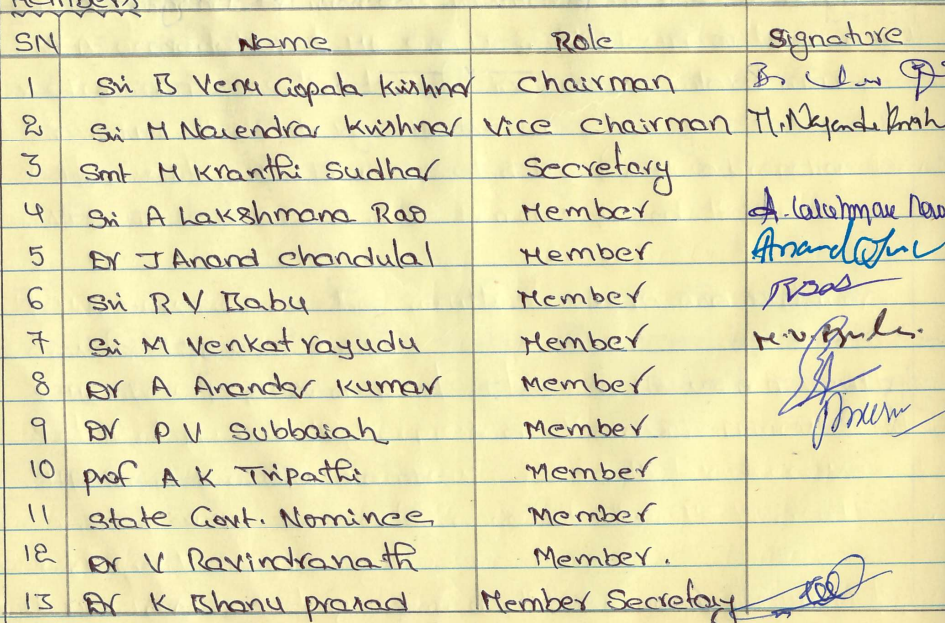 Members
SN Name Role Signature
1 Sri B Venu Gopala Krishna Chairman
2 Sri M Narendra Krishna Vice Chairman
3 Smt M Kranthi Sudha Secretary
4 Sri A Lakshmana Rao Member A. Lakshmana Rao
5 Dr J Anand Chandulal Member Anand
6 Sri R V Babu Member
7 Sri M Venkatrayudu Member
8 Dr A Ananda Kumar Member
9 Dr P V Subbaiah Member
10 Prof A K Tripathi Member
11 State Govt. Nominee Member
12 Dr V Ravindranath Member.
13 Dr K Bhanu Prasad Member Secretary